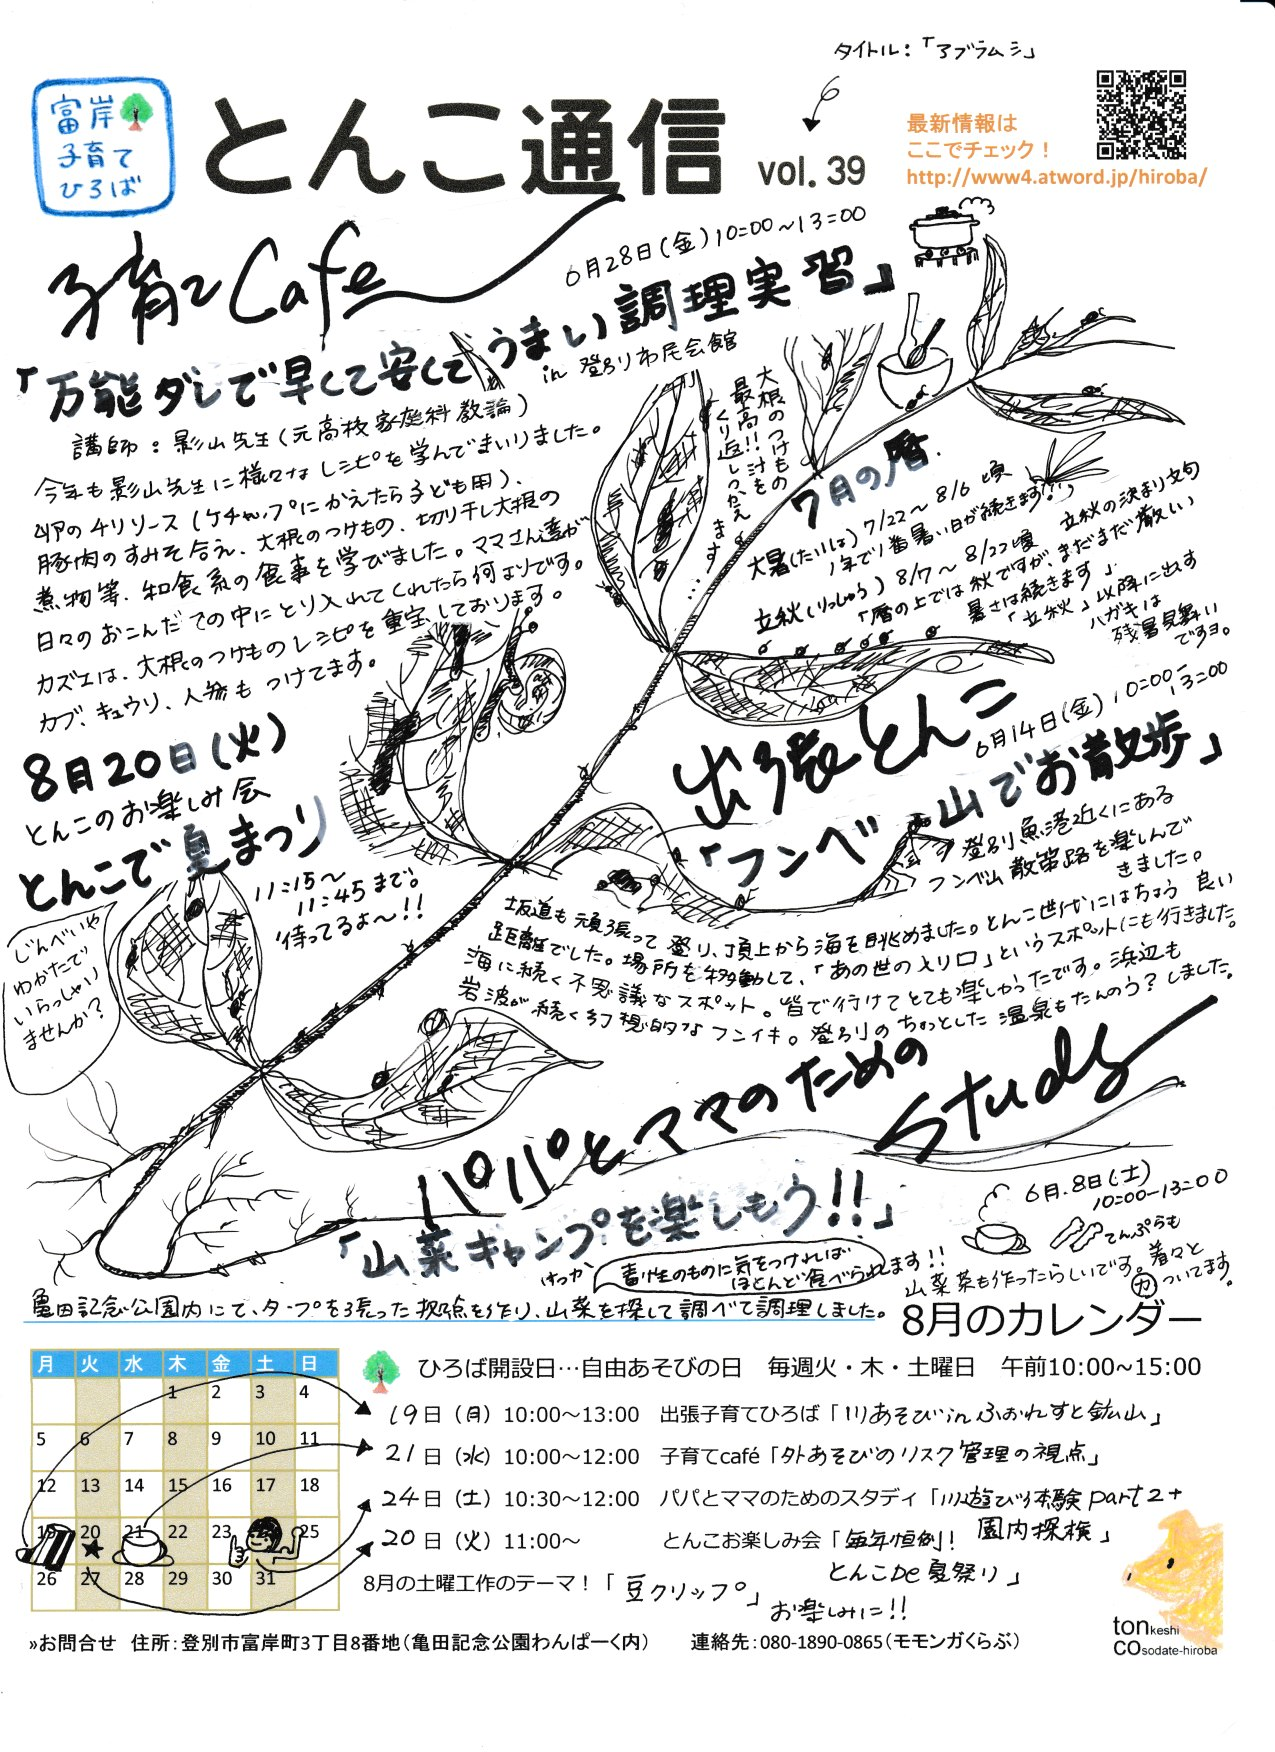 タイトル：「アブラムシ」
富岸
子育て
ひろば
とんこ通信 vol. 39
最新情報は
ここでチェック！
http://www4.atword.jp/hiroba/
子育てCafe
6月28日(金)10:00～13:00
「万能ダレで早くて安くてうまい調理実習」
in 登別市民会館
講師：影山先生(元高校家庭科教諭)
今年も影山先生に様々なレシピを学んでまいりました。
卵のチリソース(ケチャップにかえたら子ども用)、
豚肉のすみそ合え、大根のつけもの、切り干し大根の
煮物等、和食系の食事を学びました。ママさん達が
日々のおこんだての中にとり入れてくれたら何よりです。
カズエは、大根のつけものレシピを重宝しております。
カブ、キュウリ、人参もつけてます。
大根のつけもの
最高!!汁を
くり返しつかえ
ます…
7月の暦
大暑(たいしょ) 7/22～8/6頃
1年で1番暑い日が続きます!!
立秋(りっしゅう) 8/7～8/22頃 立秋の決まり文句
「暦の上では秋ですが、まだまだ厳しい
暑さは続きます」
「立秋」以降に出す
ハガキは
残暑見舞い
ですヨ。
8月20日(火)
とんこのお楽しみ会
とんこで夏まつり
11:15～
11:45まで。
待ってるよ～!!
じんべいや
ゆかたで
いらっしゃい
ませんか？
出張とんこ
6月14日(金)10:00-13:00
「フンベ山でお散歩」
登別魚港近くにある
フンベ山散策路を楽しんで
きました。
坂道も頑張って登り、頂上から海を眺めました。とんこ世代にはちょう良い
距離でした。場所を移動して、「あの世の入り口」というスポットにも行きました。
海に続く不思議なスポット。皆で行けてとても楽しかったです。浜辺も
岩波が続く幻想的なフンイキ。登別のちょっとした温泉もたんのう？しました。
パパとママのための
Study
「山菜キャンプを楽しもう!!」
6月8日(土)
10:00-13:00
けっか
毒性のものに気をつければ
ほとんど食べられます!!
てんぷらも
山菜茶も作ったらしいです。着々と
力ついてます。
亀田記念公園内にて、タープを張った拠点を作り、山菜を探して調べて調理しました。
8月のカレンダー
月 火 水 木 金 土 日
1 2 3 4
5 6 7 8 9 10 11
12 13 14 15 16 17 18
19 20 21 22 23 25
26 27 28 29 30 31
ひろば開設日…自由あそびの日　毎週火・木・土曜日　午前10:00～15:00
19日（月）10:00～13:00　出張子育てひろば「川あそびinふぉれすと鉱山」
21日（水）10:00～12:00　子育てcafé「外あそびのリスク管理の視点」
24日（土）10:30～12:00　パパとママのためのスタディ「川遊び体験part2+
園内探検」
20日（火）11:00～　とんこお楽しみ会「毎年恒例！
とんこDe夏祭り」
8月の土曜工作のテーマ！「豆クリップ」
お楽しみに!!
»お問合せ　住所：登別市富岸町3丁目8番地(亀田記念公園わんぱーく内)　連絡先：080-1890-0865(モモンガくらぶ)
tonkeshi
COsodate-hiroba